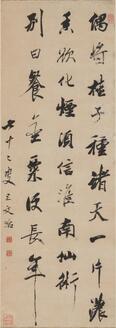 偶將桂子種諸天一片濃
香欲化煙須信淮南仙術
別日餐金粟便長年
七十二叟王文治